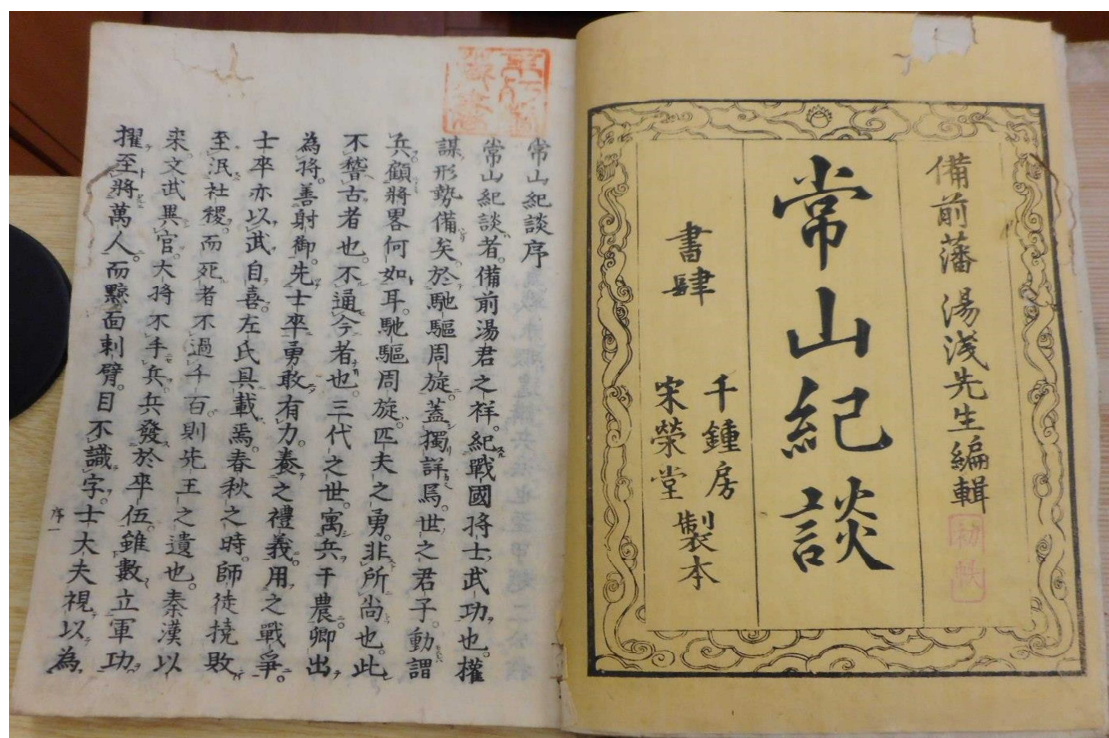 備前藩 湯浅先生編輯
初帙
常山紀談
書肆
千鍾房
宋榮堂
製本
常山紀談序
常山紀談者備前湯君之祥紀戰國將士武功也。權
謀形勢備矣。於馳驅周旋。蓋獨詳焉。世之君子。動謂
兵顧將畧何如耳。馳驅周旋。匹夫之勇。非所尚也。此
不稽古者也。不通今者也。三代之世。寓兵于農。卿出
為將。善射御。先士卒勇敢有力。養之禮義。用之戰爭。
士卒亦以武自喜。左氏具載焉。春秋之時。師徒撓敗
至泯社稷。而死者不過千百。則先王之遺也。秦漢以
來。文武異官。大將不手兵。兵發於卒伍。雖數立軍功。
擢至將萬人。而黥面刺臂。目不識字。士大夫視以為
序一